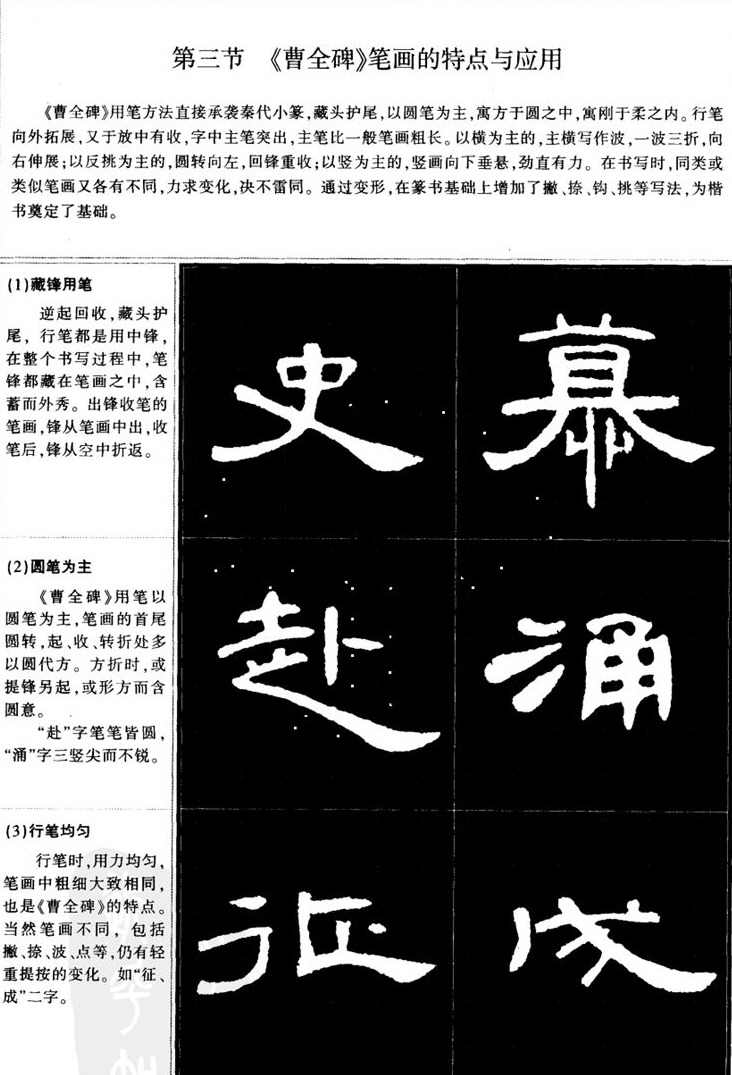 第三节 《曹全碑》笔画的特点与应用
《曹全碑》用笔方法直接承袭秦代小篆,藏头护尾,以圆笔为主,寓方于圆之中,寓刚于柔之内。行笔
向外拓展,又于放中有收,字中主笔突出,主笔比一般笔画粗长。以横为主的,主横写作波,一波三折,向
右伸展;以反挑为主的,圆转向左,回锋重收;以竖为主的,竖画向下垂悬,劲直有力。在书写时,同类或
类似笔画又各有不同,力求变化,决不雷同。通过变形,在篆书基础上增加了撇、捺、钩、挑等写法,为楷
书奠定了基础。
(1)藏锋用笔
逆起回收,藏头护
尾,行笔都是用中锋,
在整个书写过程中,笔
锋都藏在笔画之中,含
蓄而外秀。出锋收笔的
笔画,锋从笔画中出,收
笔后,锋从空中折返。
史 慕
(2)圆笔为主
《曹全碑》用笔以
圆笔为主,笔画的首尾
圆转,起、收、转折处多
以圆代方。方折时,或
提锋另起,或形方而含
圆意。
“赴”字笔笔皆圆,
“涌”字三竖尖而不锐。
赴 涌
(3)行笔均匀
行笔时,用力均匀,
笔画中粗细大致相同,
也是《曹全碑》的特点。
当然笔画不同,包括
撇、捺、波、点等,仍有轻
重提按的变化。如“征、
成”二字。
征 成